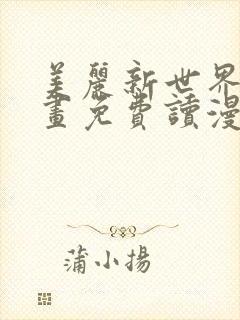 美麗新世界
畫免費讀漫
蒲小揚